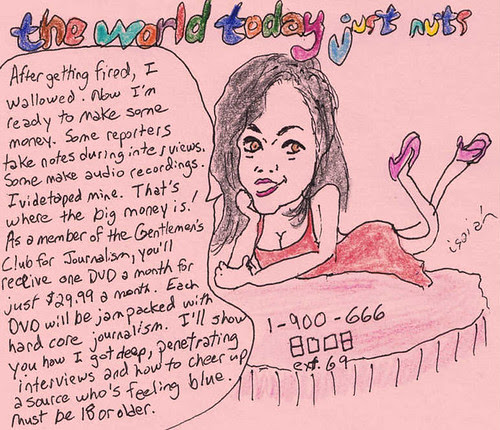 the world today just nuts
After getting fired, I
wallowed. Now I'm
ready to make some
money. Some reporters
take notes during interviews.
Some make audio recordings.
I videtaped mine. That's
where the big money is!
As a member of the Gentlemen's
Club for Journalism, you'll
receive one DVD a month for
just $29.99 a month. Each
DVD will be jam packed with
hard core journalism. I'll show
you how I got deep, penetrating
interviews and how to cheer up
a source who's feeling blue.
Must be 18 or older.
isaiah
1-900-666
ext. 69